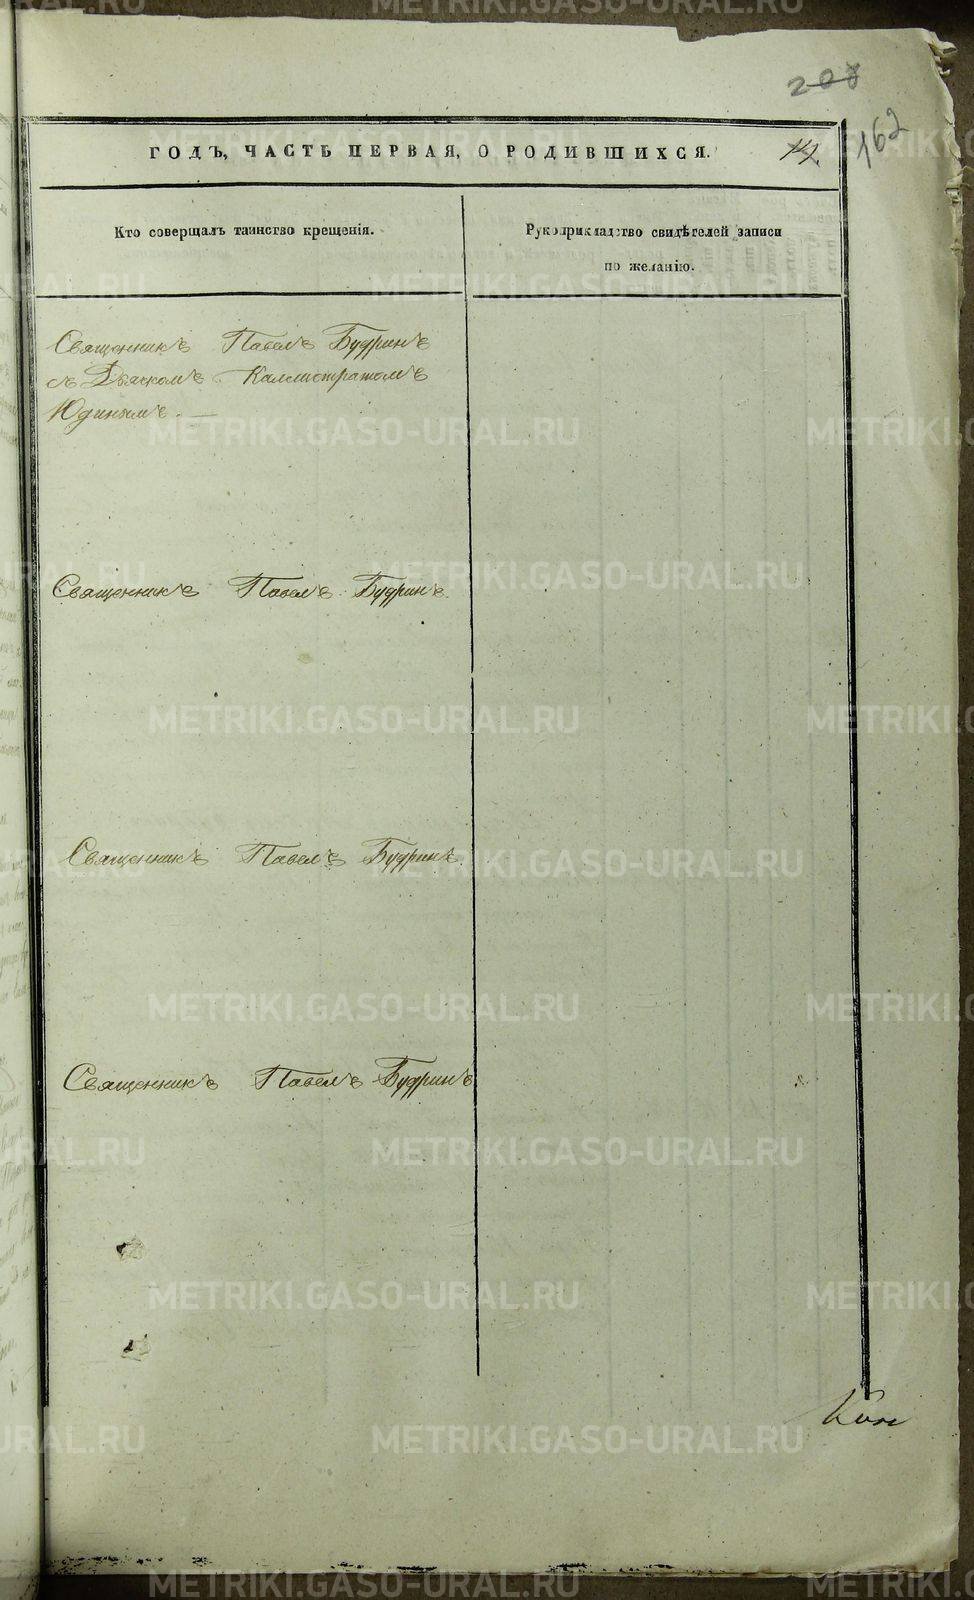 208
162
ГОДЪ, ЧАСТЬ ПЕРВАЯ, О РОДИВШИХСЯ.
Кто совершалъ таинство крещенія.
Рукоприкладство свидѣтелей записи
по желанію.
Священникъ Павелъ Будринъ
съ Дьячкомъ Каллистратомъ
Юдинымъ. —
Священникъ Павелъ Будринъ.
Священникъ Павелъ Будринъ.
Священникъ Павелъ Будринъ
METRIKI.GASO-URAL.RU